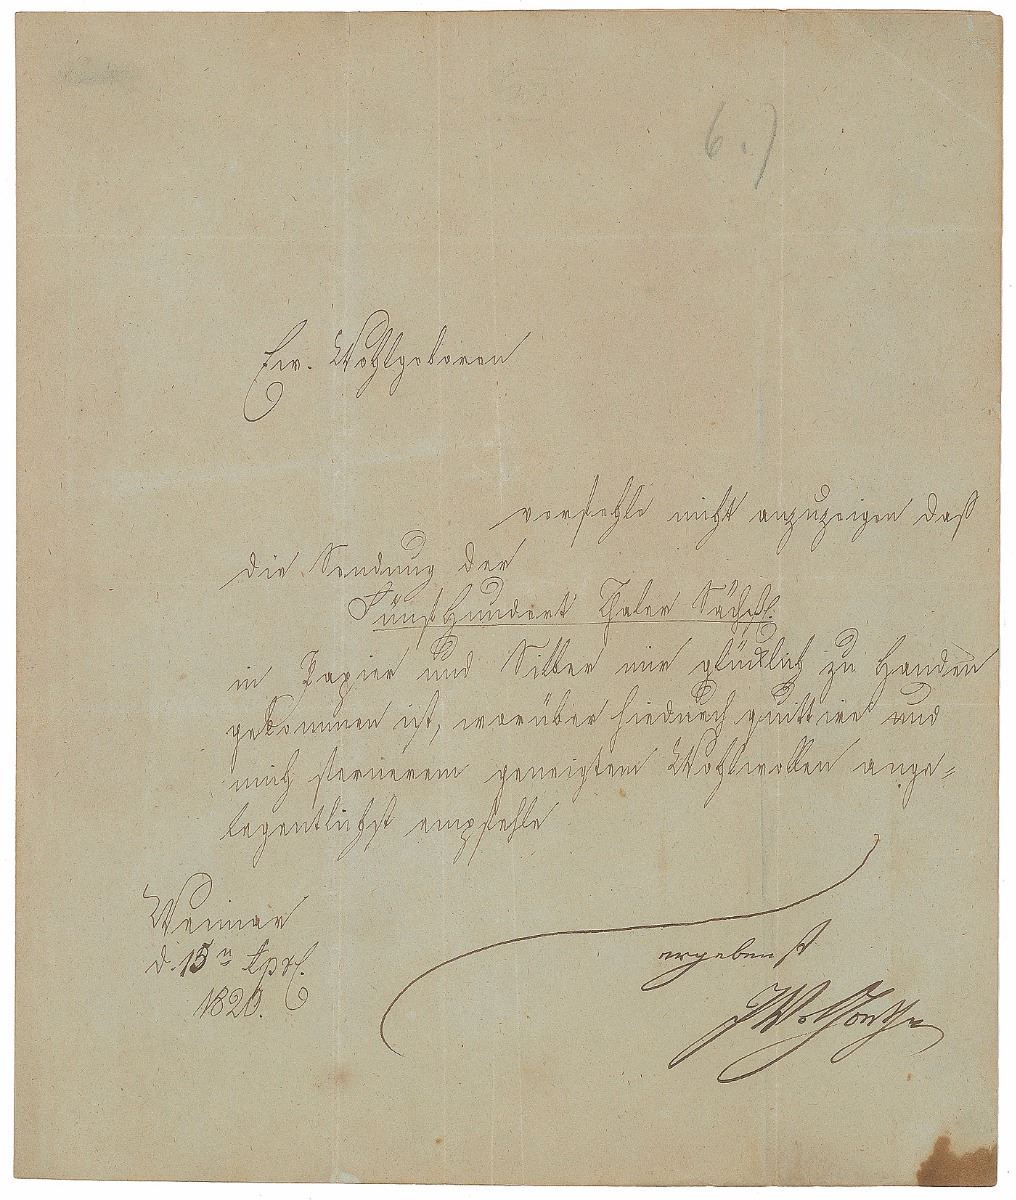 6.)
Ew. Wohlgeboren
verfehle nicht anzuzeigen daß
die Sendung der
Fünfhundert Thaler Sächß.
in Papier und Silber mir glücklich zu Handen
gekommen ist, worüber hiedurch quittire und
mich fernerem geneigtem Wohlwollen ange=
legentlichst empfehle
Weimar
d. 15n Apr.
1820.
ergebenst
JWvGoethe